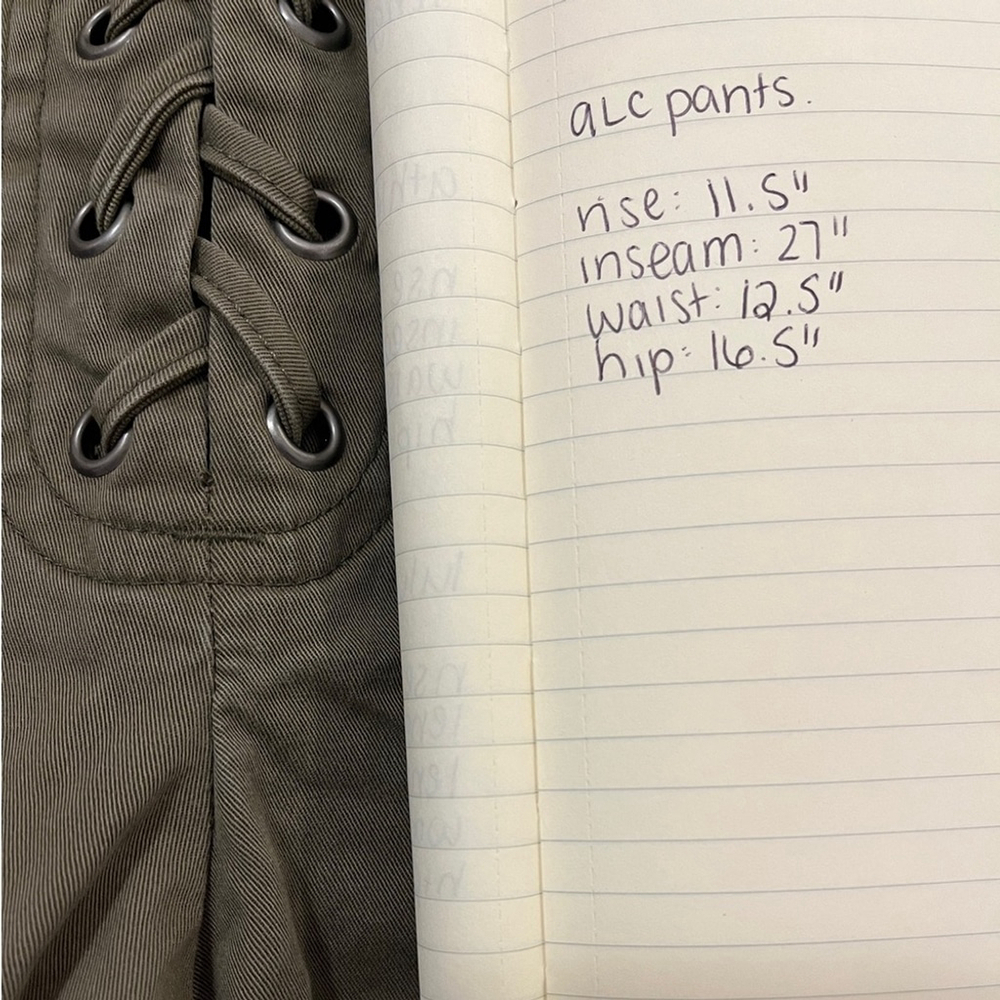 aLC pants.
rise: 11.5"
inseam: 27"
waist: 12.5"
hip: 16.5"